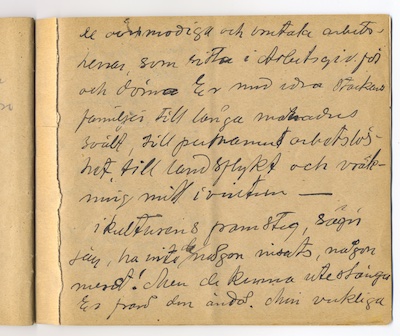 de övermodiga och brutala arbets-
herrar, som sitta i Arbetsgiv.för
och döma Er med edra stackars
familjer till långa månaders
svält, till permanent arbetslös-
het, till landsflykt och vräk-
ning mitt i vintern —
i kulturens framsteg, säger
jag, ha inte de någon insats, någon
merit! Men de kunna utestänga
Er från den ändå. Min verkliga